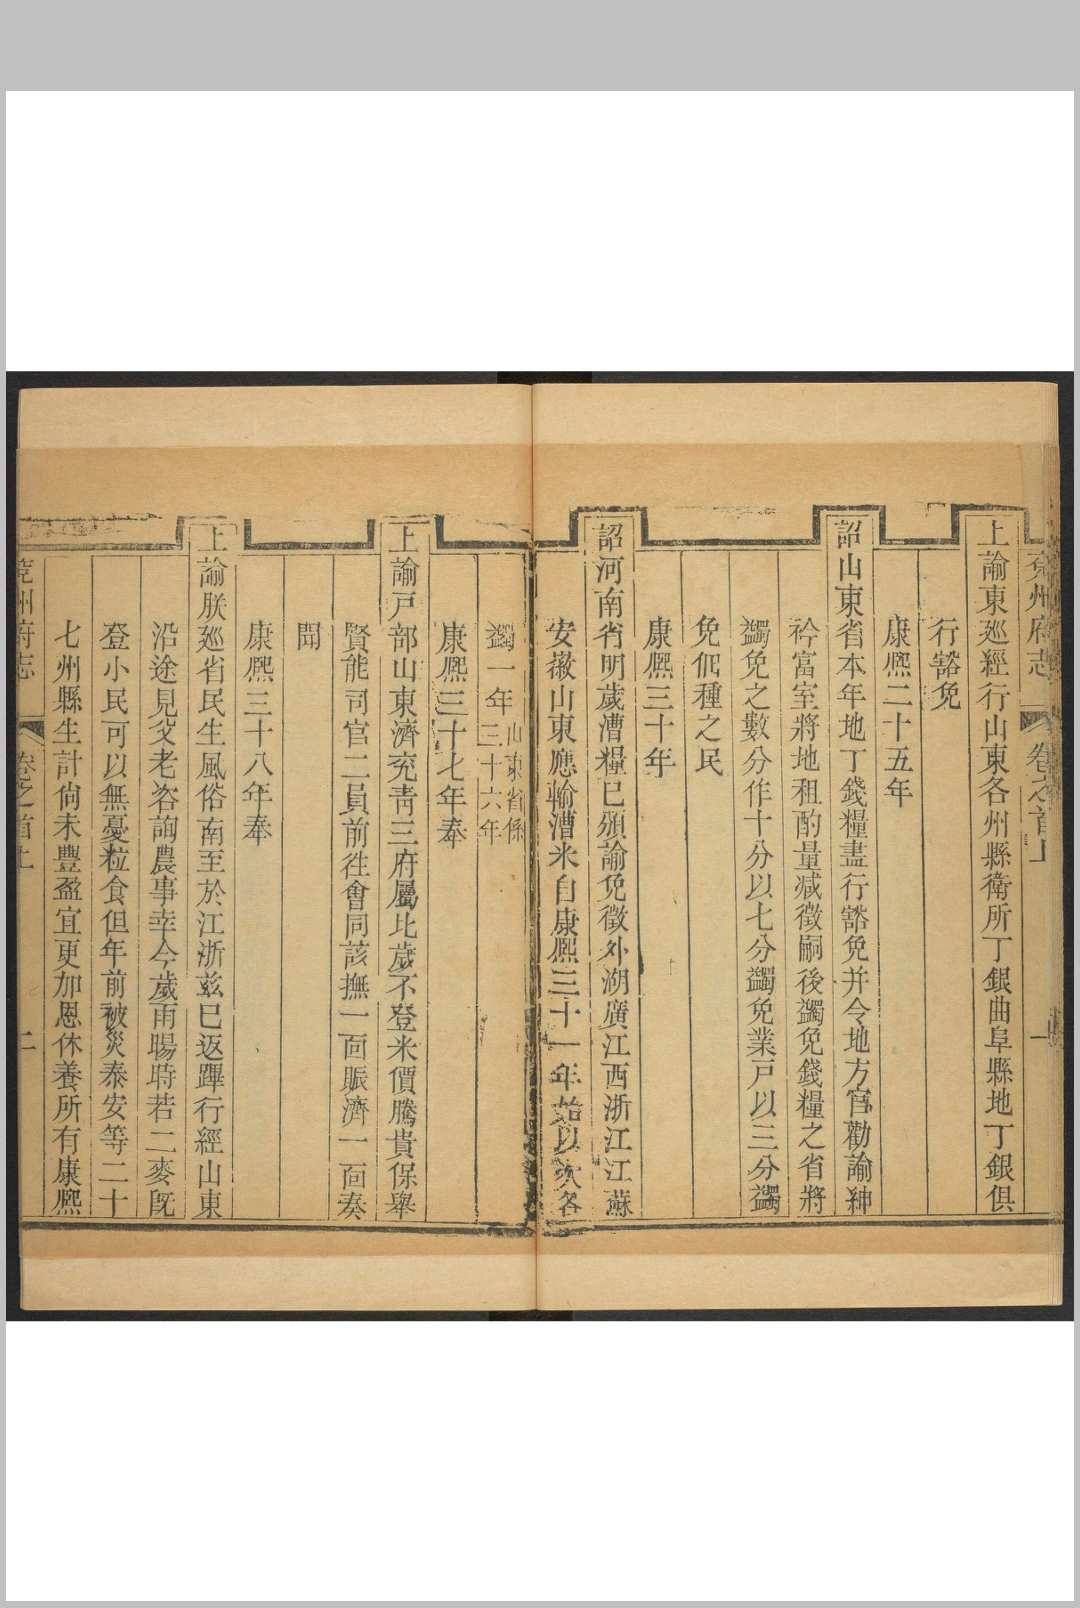 兖州府志 卷之首上 一
上諭東廵經行山東各州縣衛所丁銀曲阜縣地丁銀俱
行豁免
康熈二十五年
詔山東省本年地丁錢糧盡行豁免并令地方官勸諭紳
衿富室將地租酌量減徵嗣後蠲免錢糧之省將
蠲免之數分作十分以七分蠲免業戸以三分蠲
免佃種之民
康熈三十年
詔河南省明歲漕糧已頒諭免徵外湖廣江西浙江江蘇
安徽山東應輸漕米自康熈三十一年始以次各
蠲一年 山東省係三十六年
康熈三十七年奉
上諭戸部山東濟兖靑三府屬比歲不登米價騰貴保舉
賢能司官二員前徃會同該撫一面賑濟一面奏
聞
康熈三十八年奉
上諭朕廵省民生風俗南至於江浙兹已返蹕行經山東
沿途見父老咨詢農事幸今歲雨暘時若二麥旣
登小民可以無憂粒食但年前被災泰安等二十
七州縣生計尙未豐盈宜更加恩休養所有康熈
兖州府志 卷之首上 二